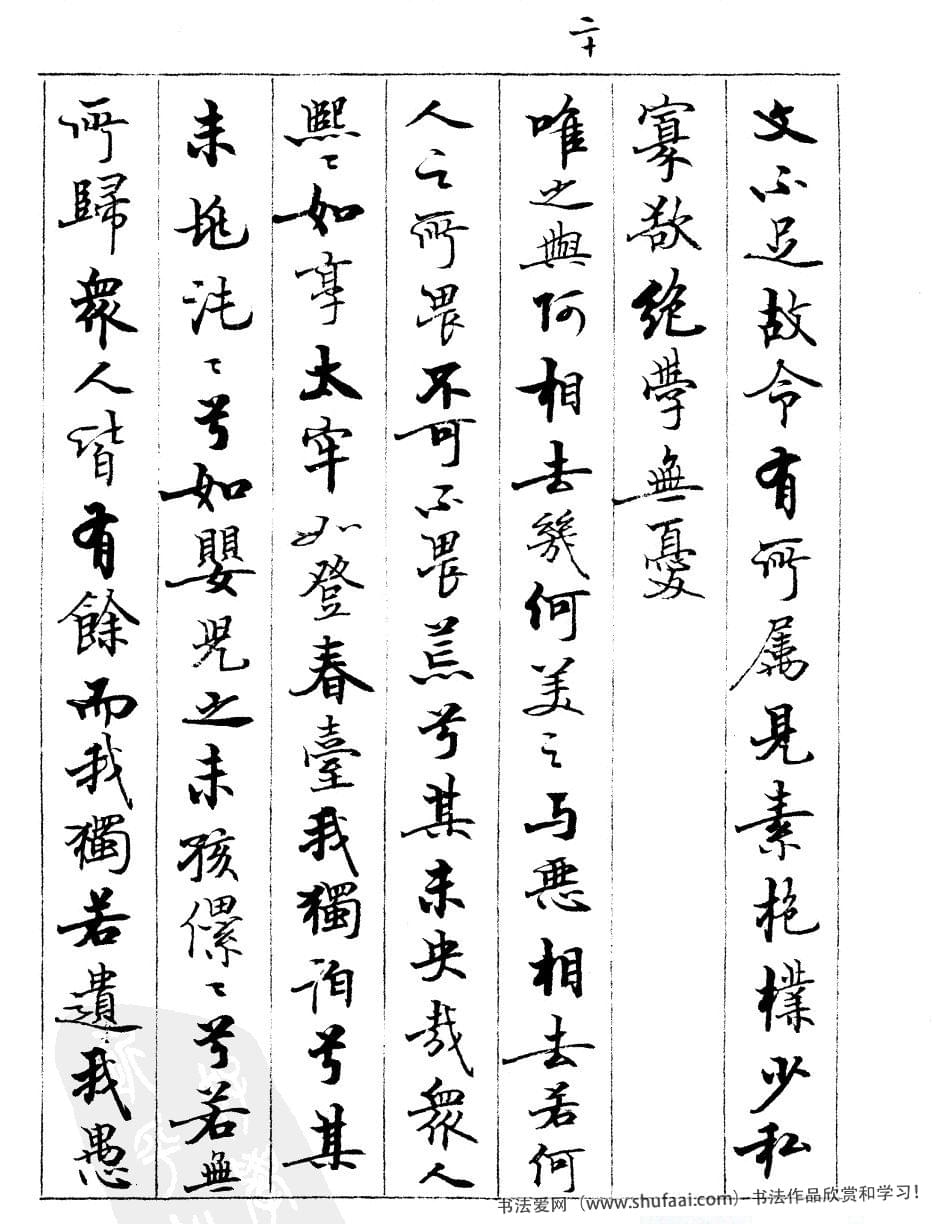 二十
文不足故令有所属見素抱樸少私
寡欲絶學無憂
唯之與阿相去幾何美之与惡相去若何
人之所畏不可不畏荒兮其未央哉衆人
熙〻如享太牢如登春臺我獨泊兮其
未兆沌〻兮如嬰児之未孩儽〻兮若無
所歸衆人皆有餘而我獨若遺我愚
书法爱网（www.shufaai.com）-书法作品欣赏和学习！